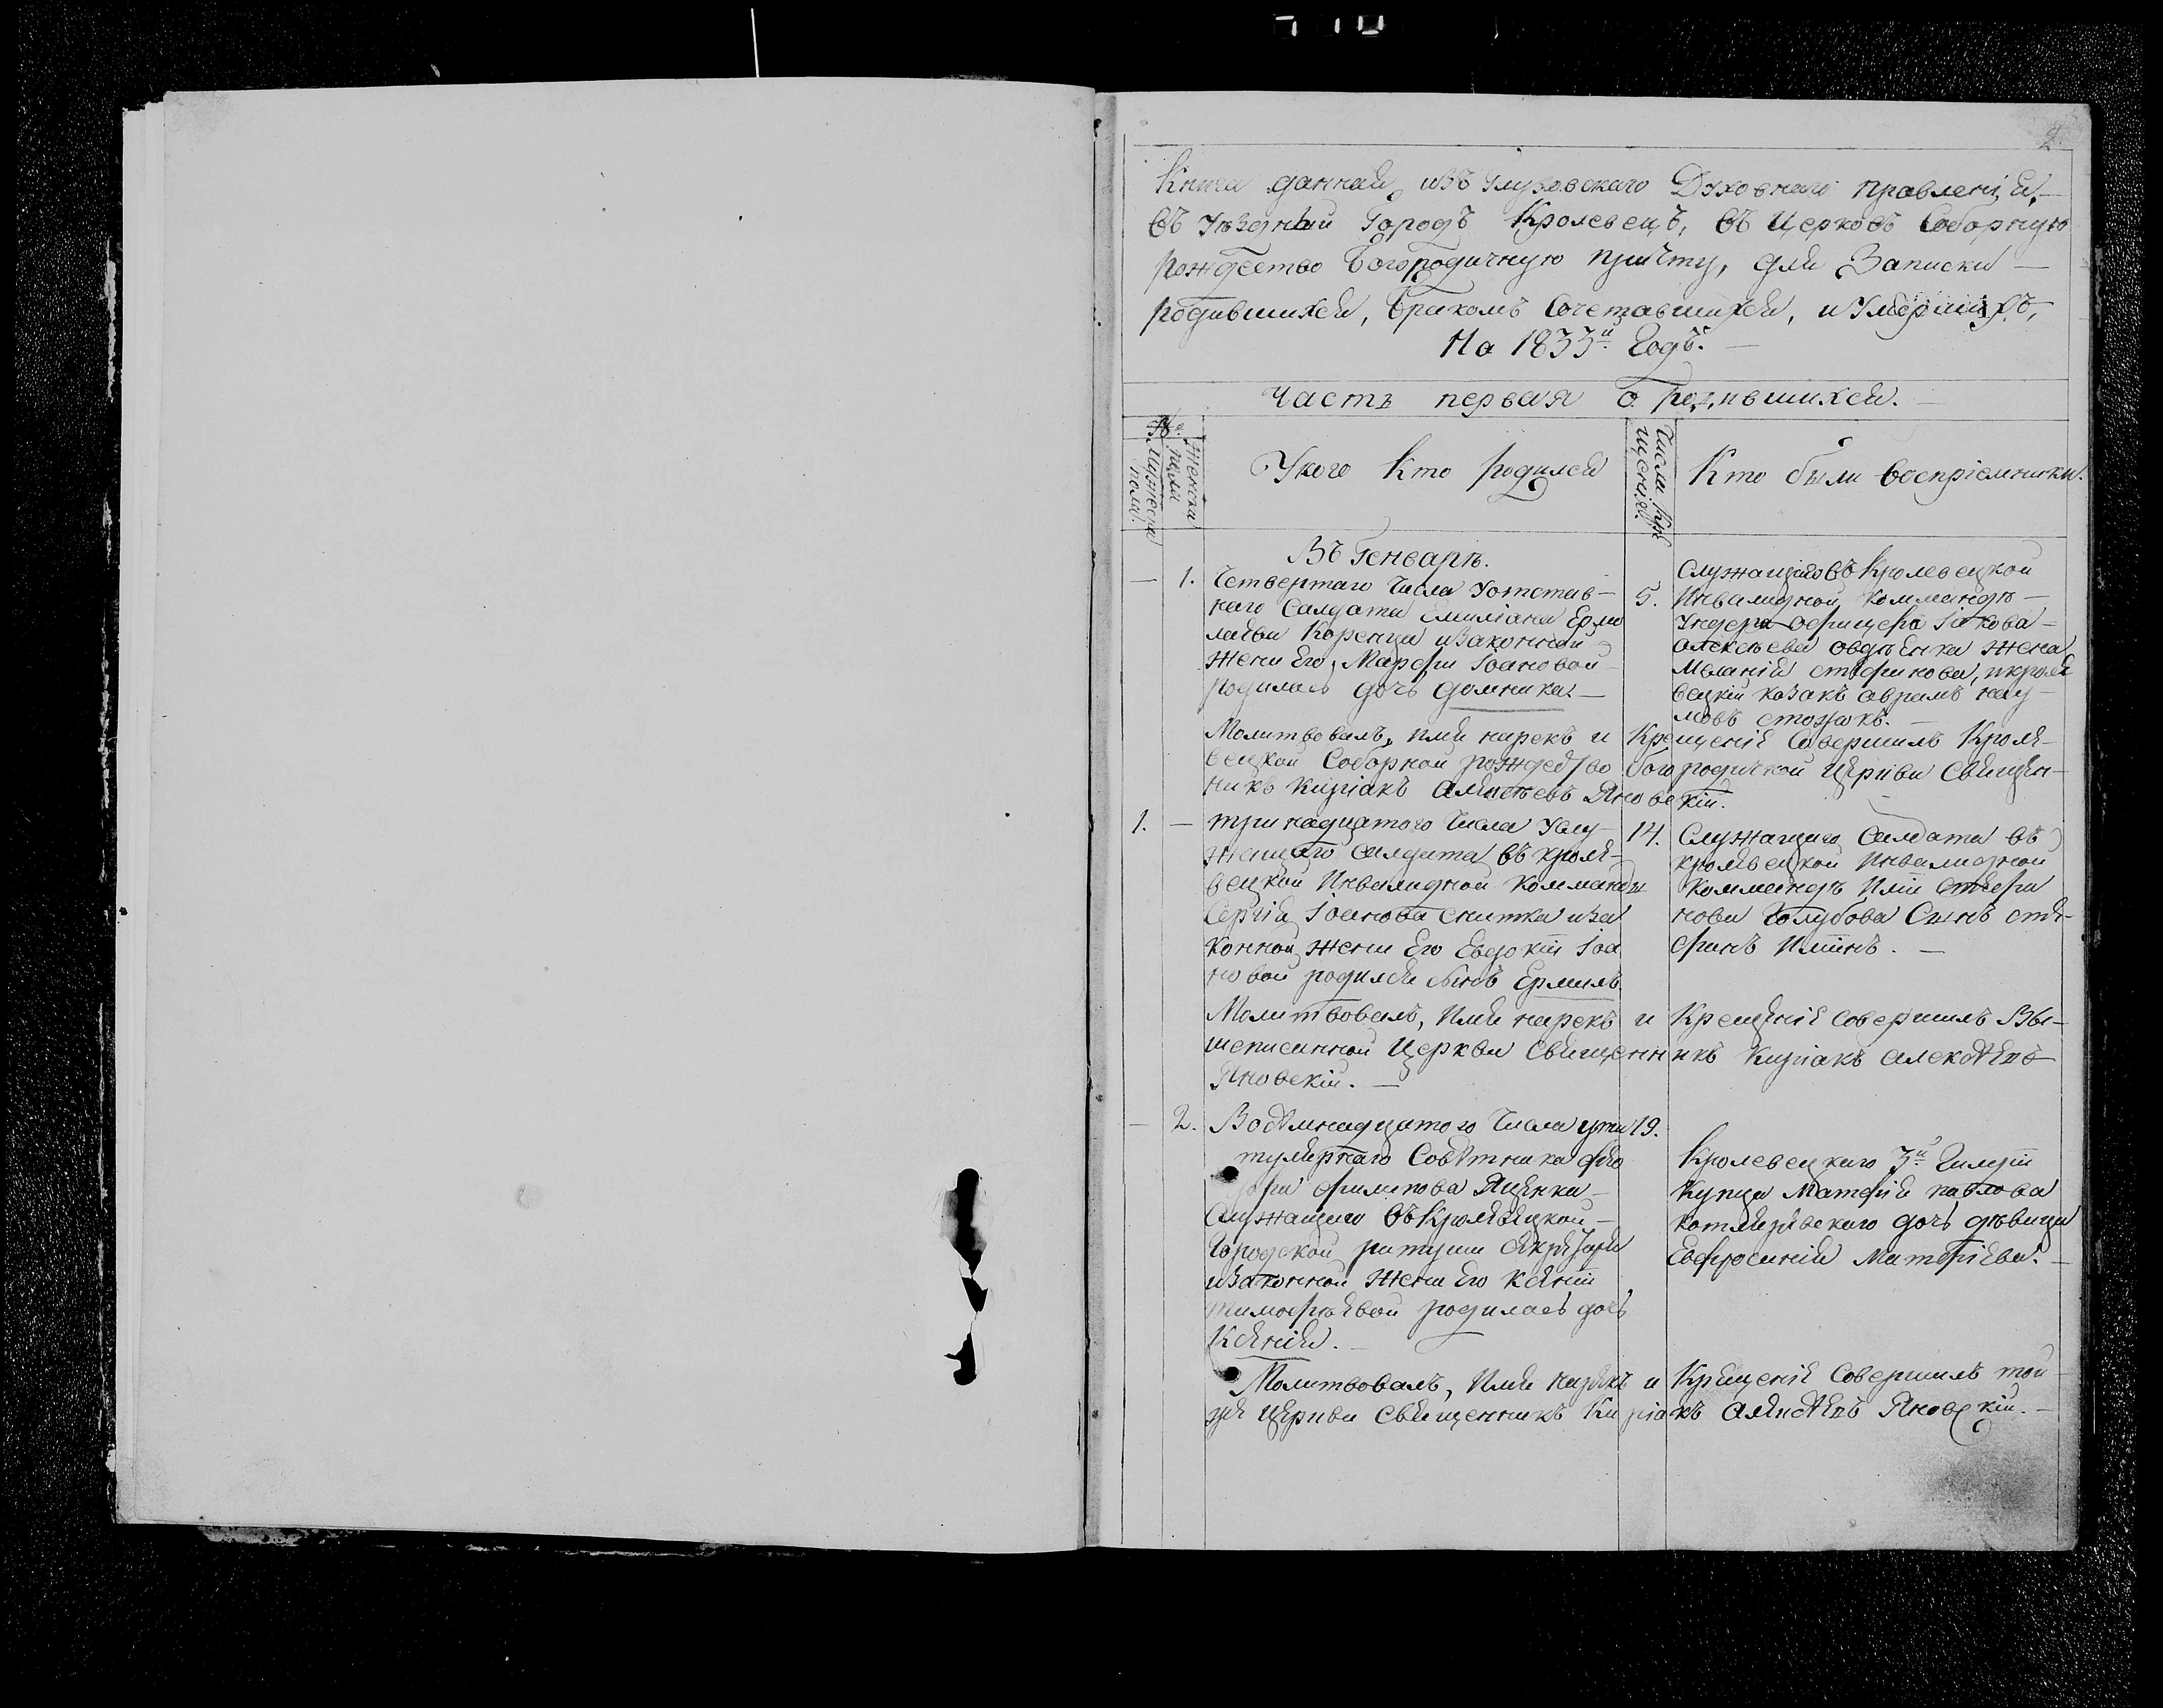 2
Книга данная изъ Глуховского Духовнаго правленія,
въ Уѣздный Городъ Кролевецъ, въ Церковъ Соборную
рождество Богородичную причту, для Записки —
родившихся, бракомъ Сочетавшихся, и Умершихъ,
На 1833й Годъ. —
часть первая о родившихся. —
№.
Мужеска пола.
Женска пола
У кого Кто родился
Числа Кре
щенія.
Кто были воспріемники.
Въ Генварѣ.
— 1. Четвертаго Числа Уотстав-
наго Салдата Емиліана Ермо
лаева Коренца изаконной
жены Его, Марфы Іоановой
родилась дочь Домника. —
5.
Служащаго въ Кролевецкой
Инвалидной Коммандѣ —
Ундера офицера Іакова —
Алексѣева овдѣенка жена
Меланія стефанова, икроле
вецкій козакъ аврамъ нау-
мовъ стожокъ. —
Молитвовалъ, имя нарекъ и Крещеніе Совершилъ Кроле-
вецкой Соборной рождество богородичной Церкви Священ-
никъ Киріакъ Алексѣевъ Яновскій.
1. — тринадцатого Числа Услу-
жащаго салдата въ кроле-
вецкой Инвалидной Комманды
Сергія Іоанова Снитка иза
конной жены Его Евдокіи Іоа
новой родился сынъ Ермилъ
14.
Служащаго Салдата въ
кролевецкой Инвалидной
Коммандѣ Иліи Стефа
нова Голубова Сынъ сте-
фанъ Иліинъ. —
Молитвовалъ, Имя нарекъ и Крещеніе Совершилъ Вы-
шеписанной Церкви Священникъ Киріакъ алексѣевъ
Яновскій. —
— 2. Восѣмнадцатого Числа ути
тулярнаго Совѣтника Фео
дора филипова Яценка —
Служащаго въ Кролевецкой —
Городской ратуши секретаря
изаконной жены Его Ксеніи
тимофѣевой родилась дочь
Ксенія. —
19.
Кролевецкаго 3й Гилдіи
Купца Матфія павлова
котляревского дочь дѣвица
Евфросинія Матфіева. —
Молитвовалъ, Имя нарекъ и Крещеніе Совершилъ той
же Церкви Священникъ Киріакъ Алексѣевъ Яновскій. —